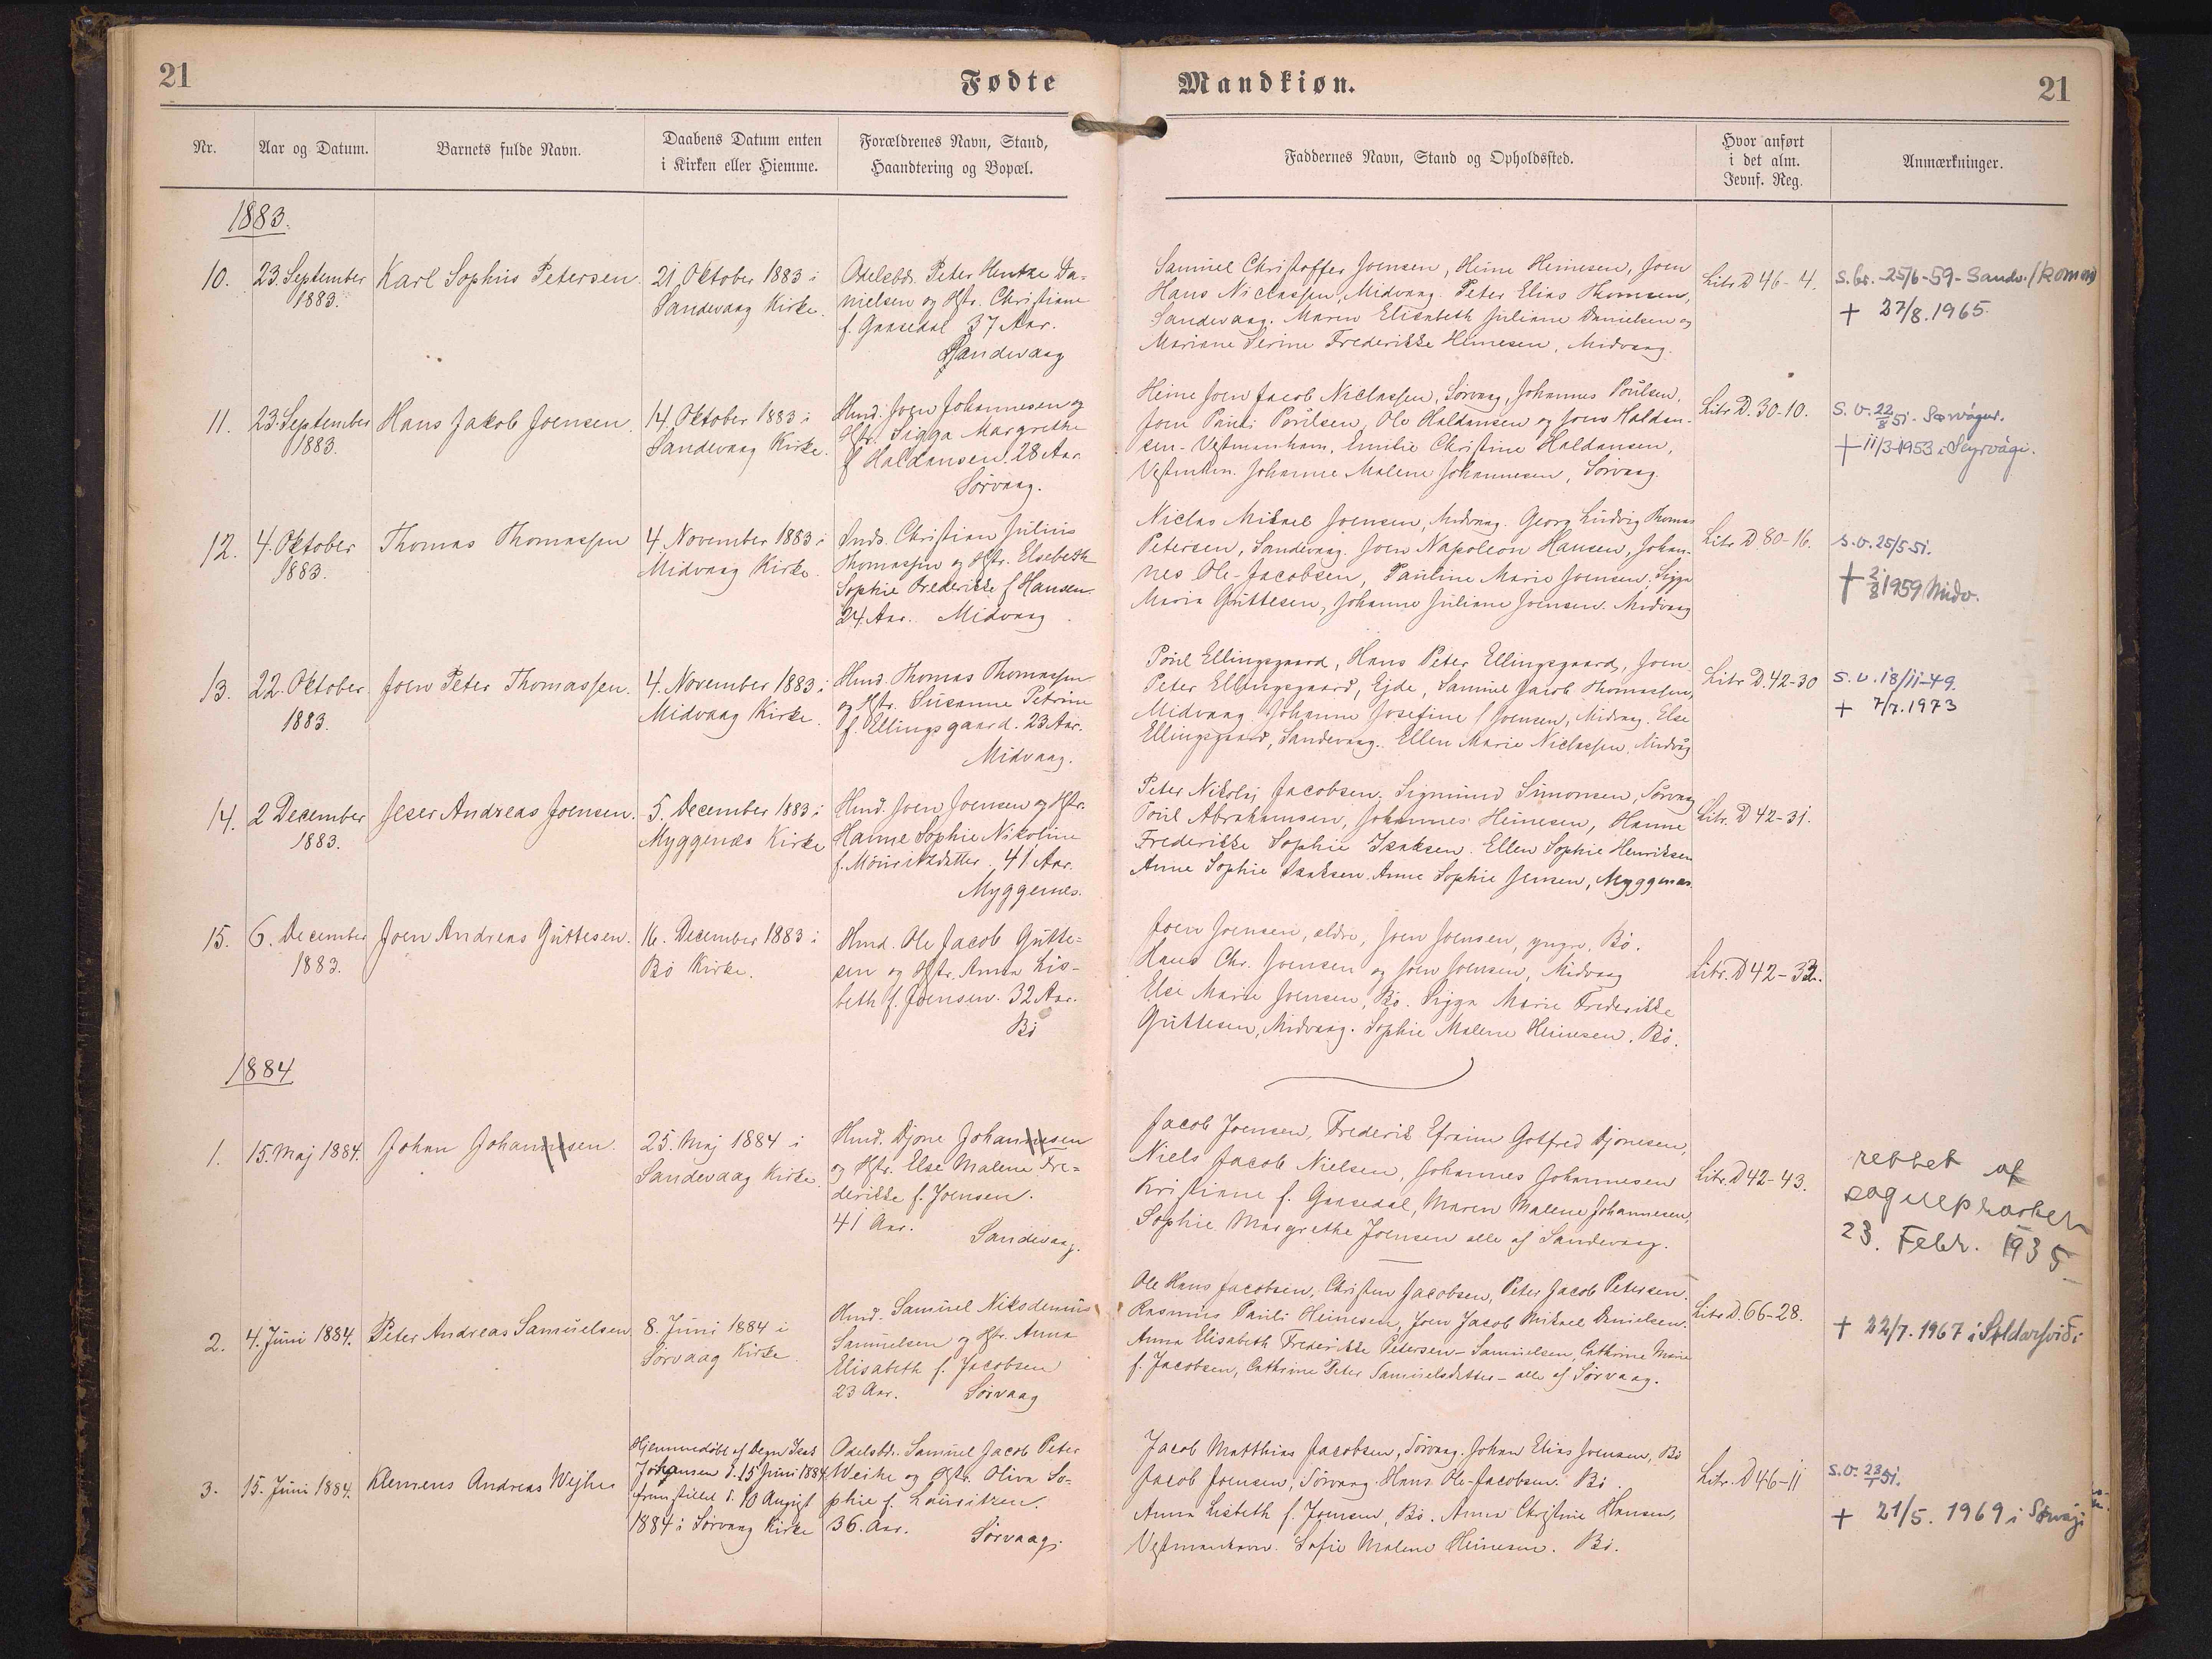 21
Fødte
Mandkiøn.
21
Nr.
Aar og Datum.
Barnets fulde Navn.
Daabens Datum enten
i Kirken eller Hiemme.
Forældrenes Navn, Stand,
Haandtering og Bopæl.
Faddernes Navn, Stand og Opholdssted.
Hvor anført
i det alm.
Jevnf. Reg.
Anmærkninger.
1883.
10.
23. September
1883.
Karl Sophus Petersen
21. Oktober 1883 i
Sandevaag Kirke.
Odelsbdr. Peter Hentze Da-
nielsen og Hstr. Christiane
f. Gaasedal 37 Aar.
Sandevaag
Samuel Christoffer Joensen, Heine Heinesen, Joen
Hans Niclassen, Midvaag. Peter Elias Thomsen,
Sandevaag. Maren Elisabeth Juliane Danielsen og
Mariane Serine Frederikke Heinesen, Midvaag.
Litr D 46-4.
s.br. 25/6-59- Sandv./Komm
+ 27/8.1965.
11.
23. September
1883.
Hans Jakob Joensen.
14. Oktober 1883 i
Sandevaag Kirke.
Hmd. Joen Johannesen og
Hstr. Sigga Margrethe
f Haldansen. 28 Aar
Sörvaag.
Heine Joen Jacob Niclassen, Sörvaag, Johannes Poulsen,
Joen Pauli Poulsen, Ole Haldansen og Jens Haldan-
sen - Vestmanhavn, Emilie Christine Haldansen,
Vestmhvn. Johanne Malene Johannesen, Sörvaag.
Litr D. 30-10.
S. v. 22/8 51. Sørvágur.
+ 11/3-1953 i Seyrvági.
12.
4. Oktober
1883.
Thomas Thomassen
4. November 1883 i
Midvaag Kirke.
Inds. Christian Julius
Thomassen og Hstr. Elsebeth
Sophie Frederikke f Hansen.
24 Aar. Midvaag
Niclas Mikael Joensen, Midvaag. Georg Ludvig Thomas
Petersen, Sandevaag. Joen Napoleon Hansen, Johan-
nes Ole-Jacobsen, Pauline Marie Joensen, Sigga
Maria Guttesen, Johanne Juliane Joensen. Midvaag
Litr D 80-16.
s.v. 25/5 51.
+ 2/8 1959 Midv.
13.
22. Oktober
1883.
Joen Peter Thomassen.
4. November 1883 i
Midvaag Kirke.
Hmd. Thomas Thomassen
og Hstr. Susanne Petrine
f. Ellingsgaard. 23 Aar.
Midvaag.
Poul Ellingsgaard, Hans Peter Ellingsgaard, Joen
Peter Ellingsgaard, Ejde, Samuel Jacob Thomassen,
Midvaag. Johanne Josefine f Joensen, Midvaag. Else
Ellingsgaard, Sandevaag. Ellen Marie Niclassen, Midvåg
Litr D. 42-30
s. v. 18/11-49.
+ 7/7.1973
14.
2 December
1883.
Jeser Andreas Joensen.
5. December 1883 i
Myggenæs Kirke
Hmd. Joen Joensen og Hstr.
Hanne Sophie Nikoline
f. Mouritzdatter. 41 Aar.
Myggenes.
Peter Nikolaj Jacobsen. Sigmund Simonsen, Sörvaag
Poul Abrahamsen, Johannes Heinesen, Hanne
Frederikke Sophie Isaksen. Ellen Sophie Henriksen
Anne Sophie Isaksen. Anne Sophie Jensen, Myggenæs.
Litr. D 42-31.
15.
6. December
1883.
Joen Andreas Guttesen.
16. December 1883 i
Bö Kirke.
Hmd. Ole Jacob Gutte-
sen og Hstr. Anna Lis-
beth f. Joensen. 32 Aar.
Bö
Joen Joensen, ældre, Joen Joensen, yngre, Bö.
Hans Chr. Joensen og Joen Joensen, Midvaag
Else Marie Joensen, Bö. Sigga Marie Frederikke
Guttesen, Midvaag. Sophie Malene Heinesen. Bö.
Litr. D 42-32.
1884
1.
15. Maj 1884.
Johan Johannesen.
25. Maj 1884 i
Sandevaag Kirke.
Hmd. Djone Johannesen
og Hstr. Else Malene Fre-
derikke f. Joensen.
41 Aar.
Sandevaag.
Jacob Joensen, Frederik Efraim Gotfred Djonesen,
Niels Jacob Nielsen, Johannes Johannesen
Kristiane f. Gaasedal, Maren Malene Johannesen,
Sophie Margrethe Joensen alle af Sandevaag.
Litr. D 42-43.
rettet af
sognepræsten
23. Febr. 1935
2.
4. Juni 1884.
Peter Andreas Samuelsen
8. Juni 1884 i
Sörvaag Kirke
Hmd. Samuel Nikodemus
Samuelsen og Hstr. Anna
Elisabeth f. Jacobsen
23 Aar. Sörvaag
Ole Hans Jacobsen, Christen Jacobsen, Peter Jacob Petersen.
Rasmus Pauli Heinesen, Joen Jacob Mikael Danielsen.
Anna Elisabeth Frederikke Petersen - Samuelsen, Cathrine Marie
f. Jacobsen, Cathrine Peter Samuelsdatter - alle af Sörvaag.
Litr D. 66-28.
+ 22/7. 1967 i Soldarfirði
3.
15. Juni 1884.
Klemens Andreas Wejhe
Hjemmedöbt af Degn Isak
Johansen d. 15 Juni 1884
fremstilled d. 10 August
1884 i Sörvaag Kirke
Odelsbdr. Samuel Jacob Peter
Weihe og Hstr. Oliva So-
phie f. Lauritzen.
36. Aar.
Sörvaag.
Jacob Matthias Jacobsen, Sörvaag. Johan Elias Joensen, Bö
Jacob Joensen, Sörvaag. Hans Ole-Jacobsen. Bö.
Anna Lisbeth f. Joensen, Bö. Anna Christine Hansen,
Vestmanhavn. Sofie Malene Heinesen. Bö.
Litr. D 46-11
s.v. 23/1 51.
+ 21/5. 1969 i Sørvági